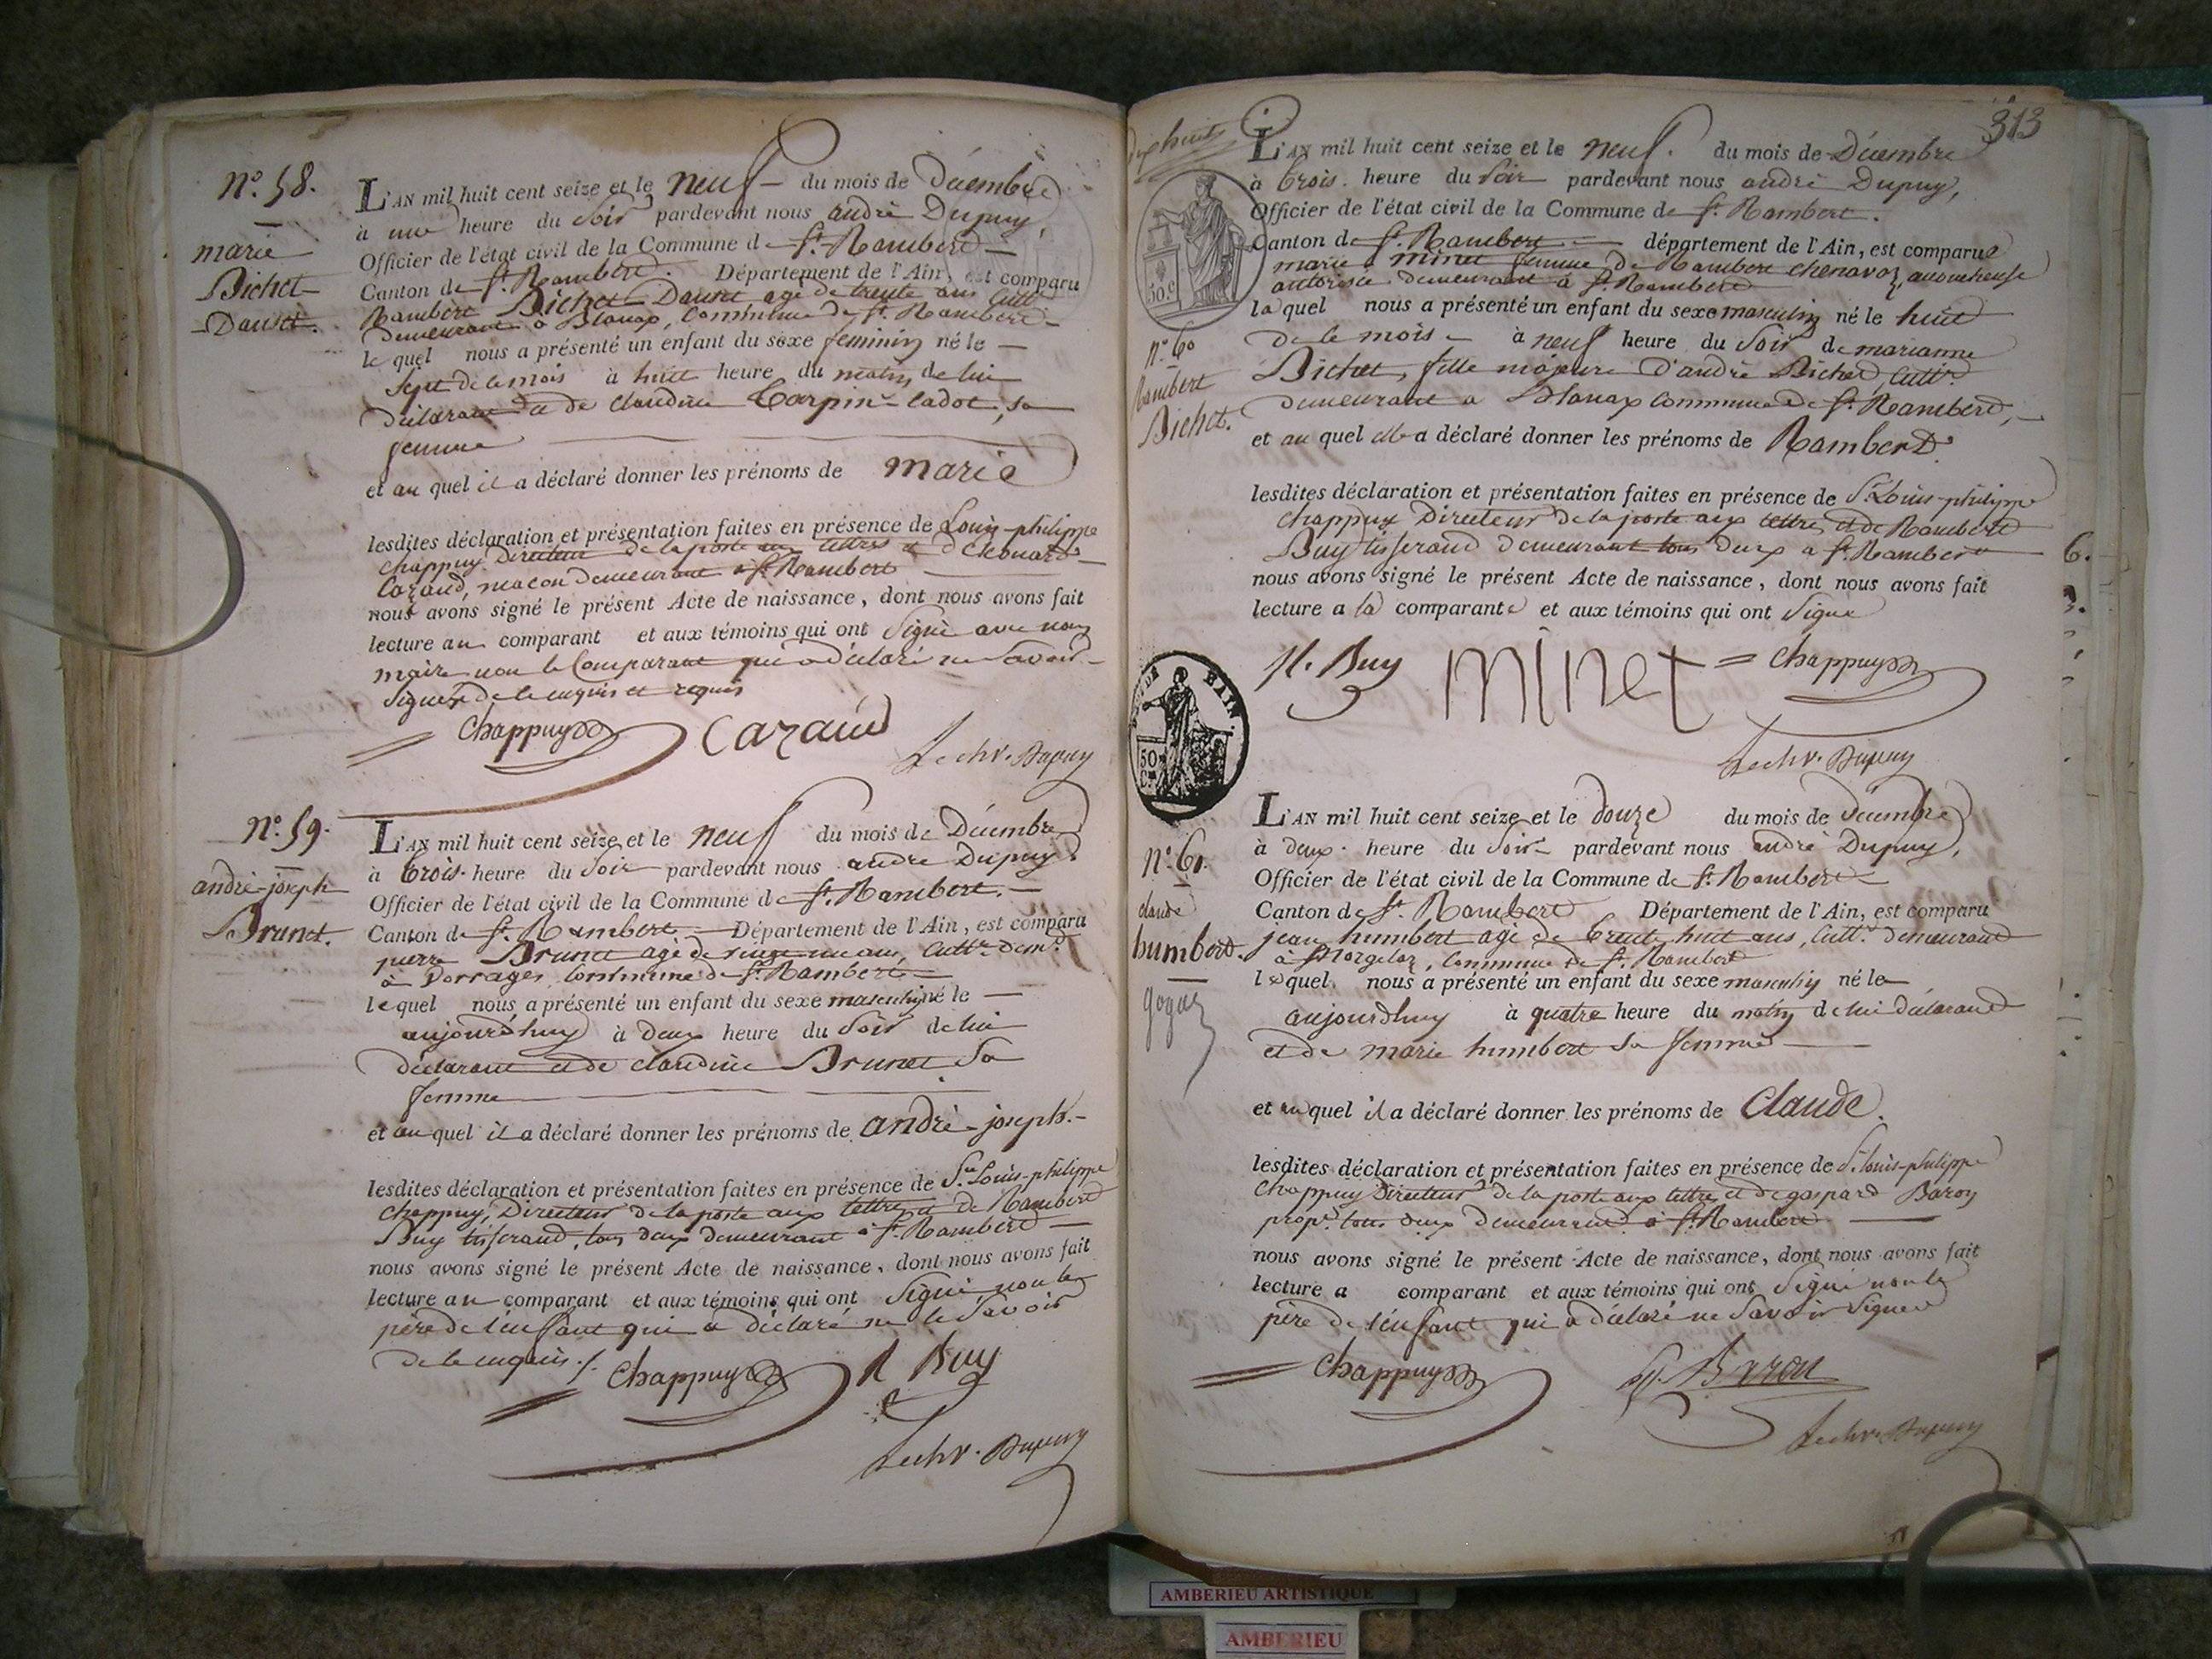 N.º 58.
marie
Bichet
Dauvet.
L'AN mil huit cent seize et le neuf du mois de Décembre
à une heure du Soir pardevant nous andré Dupuy,
Officier de l'état civil de la Commune de St. Rambert
Canton de St. Rambert. Département de l'Ain, est comparu
Rambert Bichet Dauvet agé de trente ans Cultr
demeurant à Blanaz, Commune de St. Rambert
le quel nous a présenté un enfant du sexe feminin né le
sept de ce mois à huit heure du matin de lui
déclarant et de claudine Carpin-Cadot, sa
femme
et au quel il a déclaré donner les prénoms de marie
lesdites déclaration et présentation faites en présence de Louis-philippe
chappuy Directeur de la poste aux lettres et d'
Cazaud, macon demeurant à St. Rambert
nous avons signé le présent Acte de naissance, dont nous avons fait
lecture au comparant et aux témoins qui ont Signé avec nous
maire non le Comparant qui a déclaré ne Savoir
Signer de ce enquis et requis
Chappuy Cazaud
Le chr. Dupuy
N.º 59.
andré-joseph
Brunet.
L'AN mil huit cent seize et le neuf du mois de Décembre
à trois heure du Soir pardevant nous andré Dupuy
Officier de l'état civil de la Commune de St. Rambert.
Canton de St. Rambert Département de l'Ain, est comparu
pierre Brunet agé de ans, Cultr. demt.
à Dorvages, Commune de St. Rambert
le quel nous a présenté un enfant du sexe masculin né le
aujourd'huy à deux heure du Soir de lui
déclarant et de claudine Brunet Sa
femme
et au quel il a déclaré donner les prénoms de andré-joseph.
lesdites déclaration et présentation faites en présence de Sr. Louis-philippe
chappuy, Directeur de la poste aux lettres et de Rambert
Buy tisserand, tous deux demeurant à St. Rambert
nous avons signé le présent Acte de naissance, dont nous avons fait
lecture au comparant et aux témoins qui ont Signé non le
père de l'enfant qui a déclaré ne le Savoir
de ce enquis ./.
Chappuy R Buy
Le chr. Dupuy
dix huit
313
50.c
N.º 60
Rambert
Bichet.
L'AN mil huit cent seize et le neuf. du mois de Décembre
à trois heure du Soir pardevant nous andré Dupuy,
Officier de l'état civil de la Commune de St. Rambert.
Canton de St. Rambert département de l'Ain, est comparue
marie minet femme de Rambert Chenavaz, accoucheuse
autorisée demeurant à St. Rambert
la quel nous a présenté un enfant du sexe masculin né le huit
de ce mois à neuf heure du Soir de marianne
Bichet, fille majeure d'andré Bichet, Cultr.
demeurant à Blanaz commune de St. Rambert,
et au quel elle a déclaré donner les prénoms de Rambert
lesdites déclaration et présentation faites en présence de Sr. Louis-philippe
chappuy Directeur de la poste aux lettres et de Rambert
Buy tisserand demeurant tous deux à St. Rambert
nous avons signé le présent Acte de naissance, dont nous avons fait
lecture a la comparante et aux témoins qui ont Signé
R. Buy minet Chappuy
Le chr. Dupuy
6.
50
N.º 61.
claude
humbert.
gogaz
L'AN mil huit cent seize et le douze du mois de Décembre
à deux heure du Soir pardevant nous andré Dupuy,
Officier de l'état civil de la Commune de St. Rambert
Canton de St. Rambert Département de l'Ain, est comparu
jean humbert agé de trente huit ans, Cultr. demeurant
à Morgelaz, Commune de St. Rambert
lequel nous a présenté un enfant du sexe masculin né le
aujourdhuy à quatre heure du matin de lui déclarant
et de marie humbert Sa femme
et au quel il a déclaré donner les prénoms de Claude.
lesdites déclaration et présentation faites en présence de Sr. louis-philippe
chappuy Directeur de la poste aux lettres et de gaspard Baron
propre. tous deux demeurant à St. Rambert
nous avons signé le présent Acte de naissance, dont nous avons fait
lecture a comparant et aux témoins qui ont Signé non le
père de l'enfant qui a déclaré ne Savoir Signer
Chappuy Baron
Le chr. Dupuy
AMBERIEU ARTISTIQUE
AMBERIEU